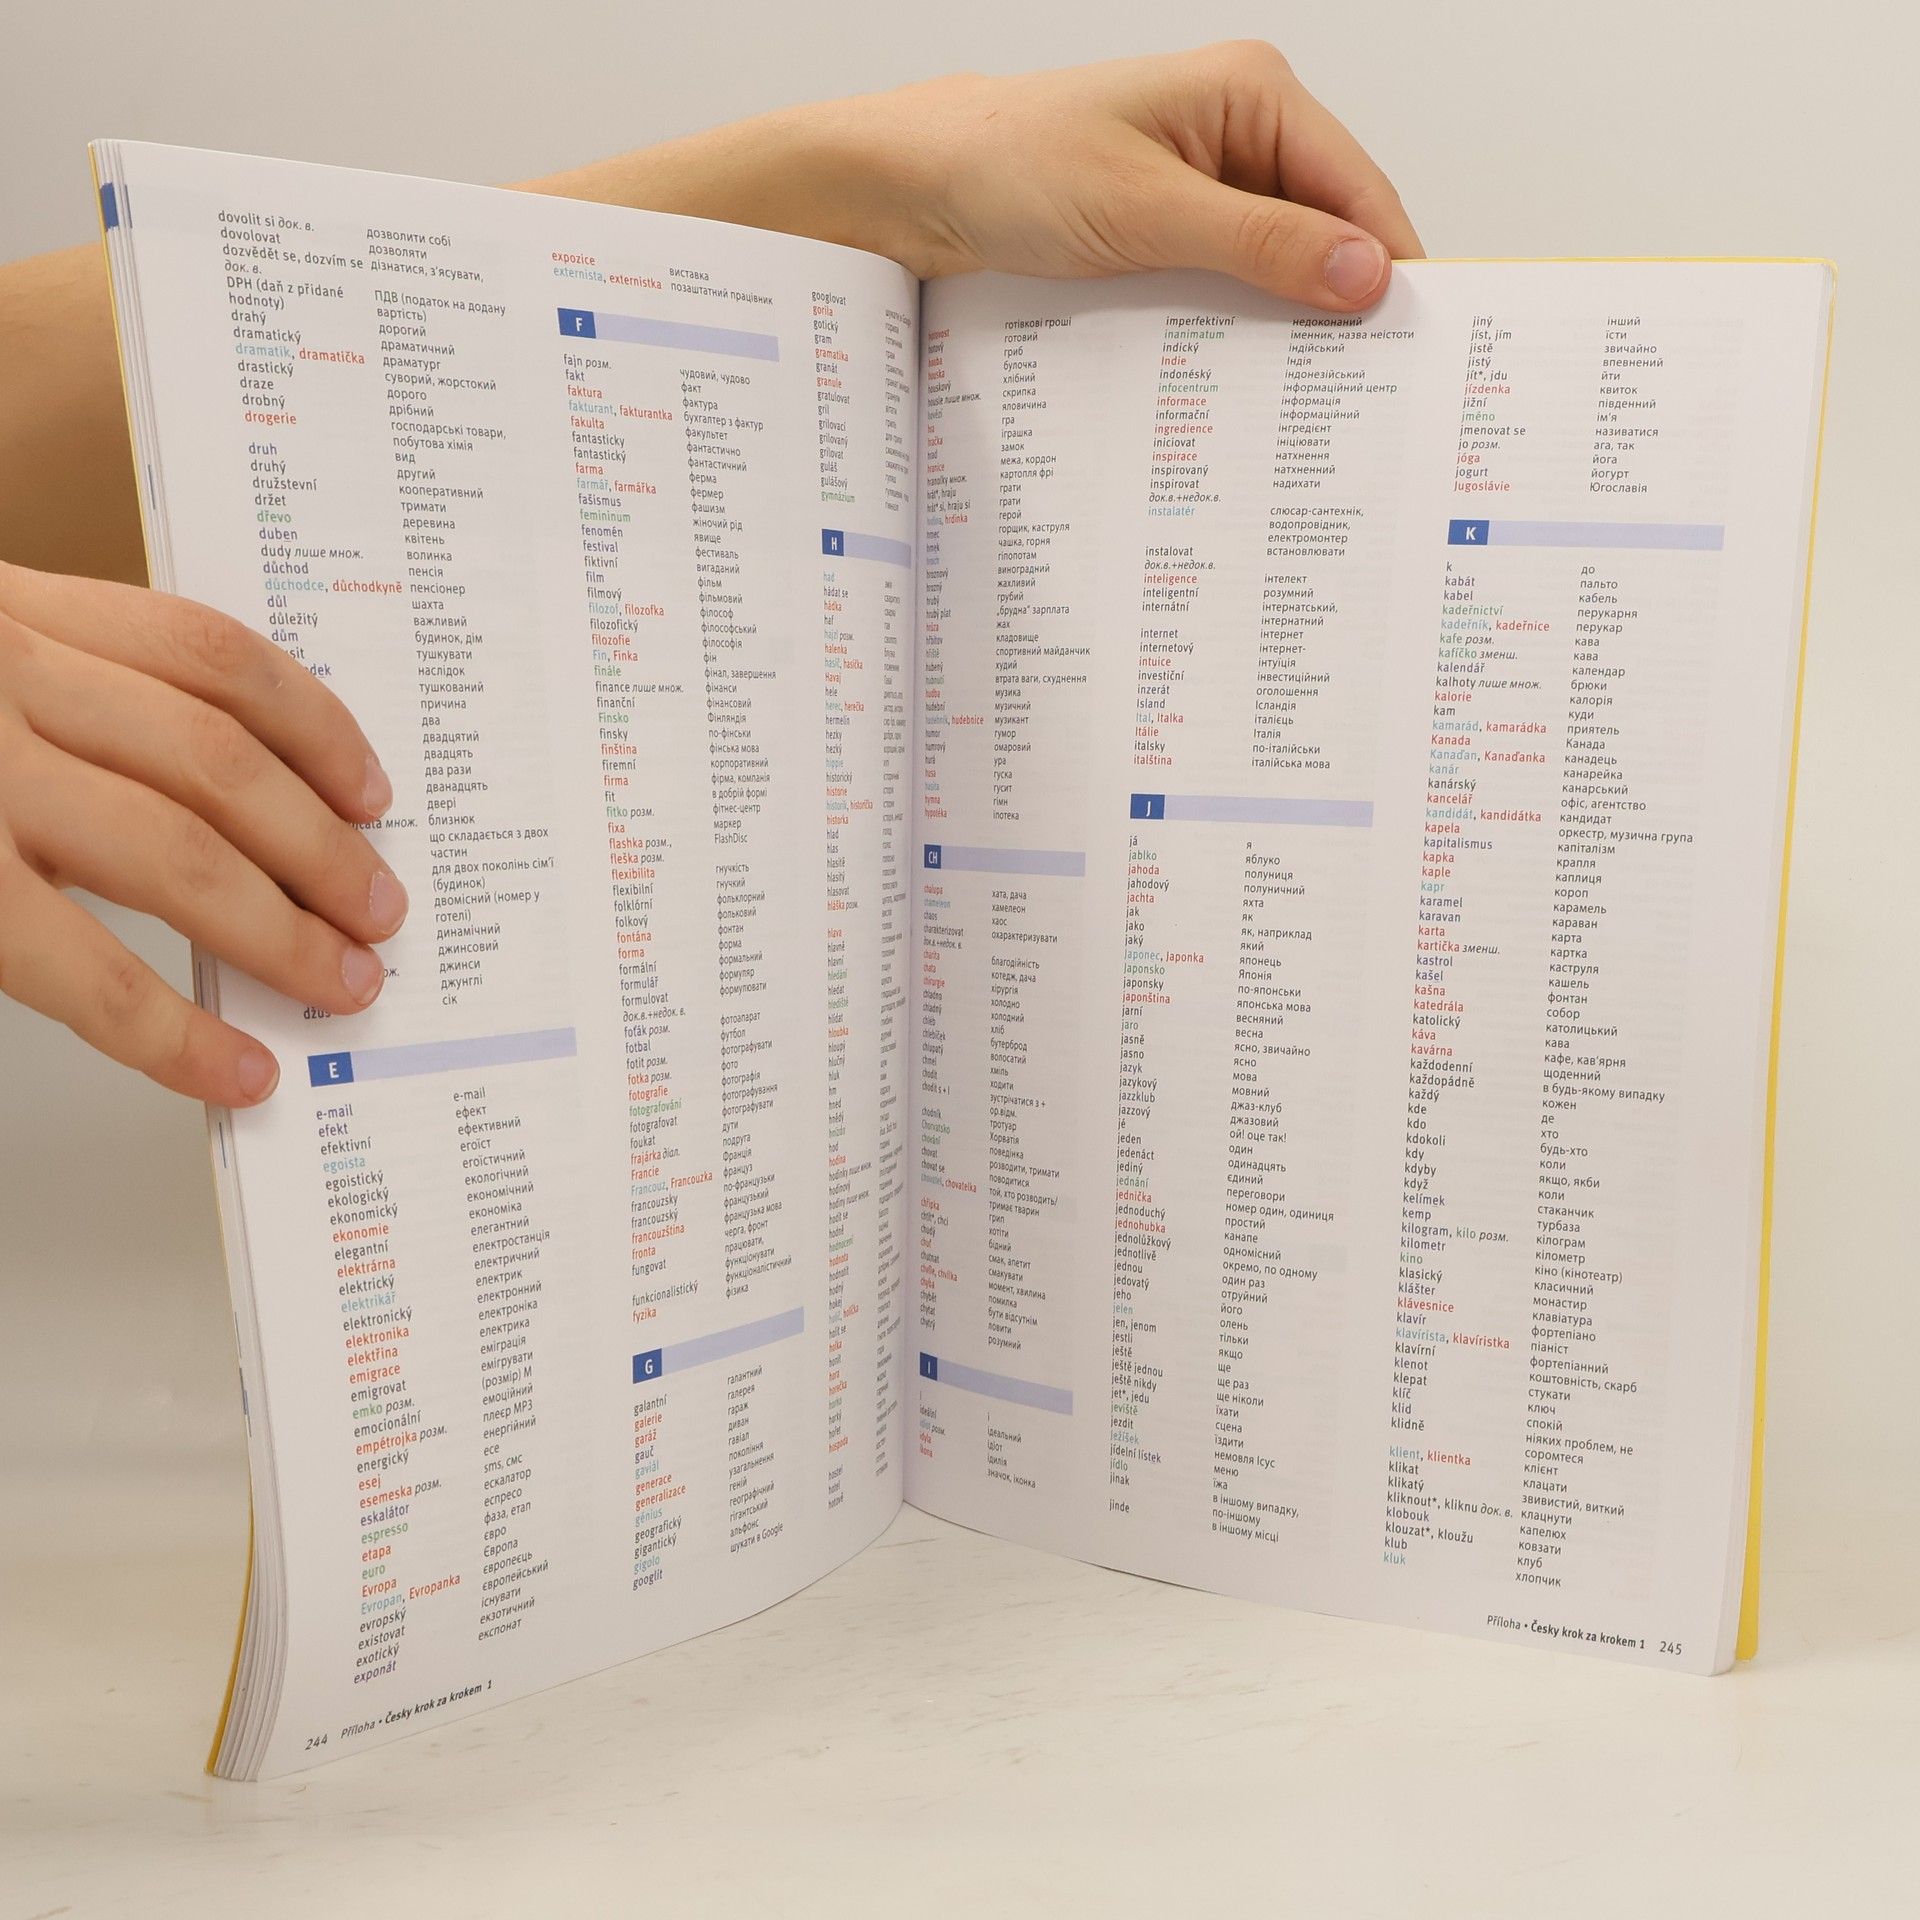 dovolit si док. в. дозволити собі
dovolovat дозволяти
dozvědět se, dozvím se дізнатися, з'ясувати,
док. в.
DPH (daň z přidané ПДВ (податок на додану
hodnoty) вартість)
drahý дорогий
dramatický драматичний
dramatik, dramatička драматург
drastický суворий, жорстокий
draze дорого
drobný дрібний
drogerie господарські товари,
побутова хімія
druh вид
druhý другий
družstevní кооперативний
držet тримати
dřevo деревина
duben квітень
dudy лише множ. волинка
důchod пенсія
důchodce, důchodkyně пенсіонер
důl шахта
důležitý важливий
dům будинок, дім
тушкувати
наслідок
тушкований
причина
два
двадцятий
двадцять
два рази
дванадцять
двері
множ. близнюк
що складається з двох
частин
для двох поколінь сім'ї
(будинок)
двомісний (номер у
готелі)
динамічний
джинсовий
джинси
джунглі
džus сік
E
e-mail e-mail
efekt ефект
efektivní ефективний
egoista егоїст
egoistický егоїстичний
ekologický екологічний
ekonomický економічний
ekonomie економіка
elegantní елегантний
elektrárna електростанція
elektrický електричний
elektrikář електрик
elektronický електронний
elektronika електроніка
elektřina електрика
emigrace еміграція
emigrovat емігрувати
emko розм. (розмір) M
emocionální емоційний
empétrojka розм. плеєр MP3
energický енергійний
esej есе
esemeska розм. sms, смс
eskalátor ескалатор
espresso еспресо
etapa фаза, етап
euro євро
Evropa Європа
Evropan, Evropanka європеєць
evropský європейський
existovat існувати
exotický екзотичний
exponát експонат
expozice виставка
externista, externistka позаштатний працівник
F
fajn розм. чудовий, чудово
fakt факт
faktura фактура
fakturant, fakturantka бухгалтер з фактур
fakulta факультет
fantasticky фантастично
fantastický фантастичний
farma ферма
farmář, farmářka фермер
fašismus фашизм
femininum жіночий рід
fenomén явище
festival фестиваль
fiktivní вигаданий
film фільм
filmový фільмовий
filozof, filozofka філософ
filozofický філософський
filozofie філософія
Fin, Finka фін
finále фінал, завершення
finance лише множ. фінанси
finanční фінансовий
Finsko Фінляндія
finsky по-фінськи
finština фінська мова
firemní корпоративний
firma фірма, компанія
fit в добрій формі
fitko розм. фітнес-центр
fixa маркер
flashka розм., FlashDisc
fleška розм.
flexibilita гнучкість
flexibilní гнучкий
folklórní фольклорний
folkový фольковий
fontána фонтан
forma форма
formální формальний
formulář формуляр
formulovat формулювати
док.в.+недок. в.
foťák розм. фотоапарат
fotbal футбол
fotit розм. фотографувати
fotka розм. фото
fotografie фотографія
fotografování фотографування
fotografovat фотографувати
foukat дути
frajárka діал. подруга
Francie Франція
Francouz, Francouzka француз
francouzsky по-французьки
francouzský французький
francouzština французька мова
fronta черга, фронт
fungovat працювати,
функціонувати
funkcionalistický функціоналістичний
fyzika фізика
G
galantní галантний
galerie галерея
garáž гараж
gauč диван
gaviál гавіал
generace покоління
generalizace узагальнення
génius геній
geografický географічний
gigantický гігантський
gigolo альфонс
googlit шукати в Google
googlovat
gorila
gotický
gram
gramatika
granát
granule
gratulovat
gril
grilovací
grilovaný
grilovat
guláš
gulášový
gymnázium
H
had
hádat se
hádka
haf
hajzl розм.
halenka
hasič, hasička
Havaj
hele
herec, herečka
hermelín
hezky
hezký
hippie
historický
historie
historik, historička
historka
hlad
hlas
hlasitě
hlasitý
hlasovat
hláška розм.
hlava
hlavně
hlavní
hledání
hledat
hlediště
hlídat
hloubka
hloupý
hlučný
hluk
hm
hned
hnědý
hnízdo
hod
hodina
hodinky лише множ.
hodinový
hodiny лише множ.
hodit se
hodně
hodnocení
hodnota
hodnotit
hodný
hokej
holič, holička
holit se
holka
honit
hora
horečka
horko
horký
hořet
hospoda
hostel
hotel
hotově
244 Příloha • Česky krok za krokem 1
hotovost готівкові гроші
hotový готовий
houba гриб
houska булочка
houskový хлібний
housle лише множ. скрипка
hovězí яловичина
hra гра
hračka іграшка
hrad замок
hranice межа, кордон
hranolky множ. картопля фрі
hrát*, hraju грати
hrát* si, hraju si грати
hrdina, hrdinka герой
hrnec горщик, каструля
hrnek чашка, горня
hroch гіпопотам
hroznový виноградний
hrozný жахливий
hrubý грубий
hrubý plat „брудна" зарплата
hrůza жах
hřbitov кладовище
hřiště спортивний майданчик
hubený худий
hubnutí втрата ваги, схуднення
hudba музика
hudební музичний
hudebník, hudebnice музикант
humor гумор
humrový омаровий
hurá ура
husa гуска
husita гусит
hymna гімн
hypotéka іпотека
CH
chalupa хата, дача
chameleon хамелеон
chaos хаос
charakterizovat охарактеризувати
док.в.+недок. в.
charita благодійність
chata котедж, дача
chirurgie хірургія
chladno холодно
chladný холодний
chléb хліб
chlebíček бутерброд
chlupatý волосатий
chmel хміль
chodit ходити
chodit s + I зустрічатися з +
ор.відм.
chodník тротуар
Chorvatsko Хорватія
chování поведінка
chovat розводити, тримати
chovat se поводитися
chovatel, chovatelka той, хто розводить/
тримає тварин
chřipka грип
chtít*, chci хотіти
chudý бідний
chuť смак, апетит
chutnat смакувати
chvíle, chvilka момент, хвилина
chyba помилка
chybět бути відсутнім
chytat ловити
chytrý розумний
I
i і
ideální ідеальний
idiot розм. ідіот
idyla ідилія
ikona значок, іконка
imperfektivní недоконаний
inanimatum іменник, назва неістоти
indický індійський
Indie Індія
indonéský індонезійський
infocentrum інформаційний центр
informace інформація
informační інформаційний
ingredience інгредієнт
iniciovat ініціювати
inspirace натхнення
inspirovaný натхненний
inspirovat надихати
док.в.+недок.в.
instalatér слюсар-сантехнік,
водопровідник,
електромонтер
instalovat встановлювати
док.в.+недок.в.
inteligence інтелект
inteligentní розумний
internátní інтернатський,
інтернатний
internet інтернет
internetový інтернет-
intuice інтуіція
investiční інвестиційний
inzerát оголошення
Island Ісландія
Ital, Italka італієць
Itálie Італія
italsky по-італійськи
italština італійська мова
J
já я
jablko яблуко
jahoda полуниця
jahodový полуничний
jachta яхта
jak як
jako як, наприклад
jaký який
Japonec, Japonka японець
Japonsko Японія
japonsky по-японськи
japonština японська мова
jarní весняний
jaro весна
jasně ясно, звичайно
jasno ясно
jazyk мова
jazykový мовний
jazzklub джаз-клуб
jazzový джазовий
jé ой! оце так!
jeden один
jedenáct одинадцять
jediný єдиний
jednání переговори
jednička номер один, одиниця
jednoduchý простий
jednohubka канапе
jednolůžkový одномісний
jednotlivě окремо, по одному
jednou один раз
jedovatý отруйний
jeho його
jelen олень
jen, jenom тільки
jestli якщо
ještě ще
ještě jednou ще раз
ještě nikdy ще ніколи
jet*, jedu їхати
jeviště сцена
jezdit їздити
Ježíšek немовля Ісус
jídelní lístek меню
jídlo їжа
jinak в іншому випадку,
по-іншому
jinde в іншому місці
jiný інший
jíst, jím їсти
jistě звичайно
jistý впевнений
jít*, jdu йти
jízdenka квиток
jižní південний
jméno ім'я
jmenovat se називатися
jo розм. ага, так
jóga йога
jogurt йогурт
Jugoslávie Югославія
K
k до
kabát пальто
kabel кабель
kadeřnictví перукарня
kadeřník, kadeřnice перукар
kafe розм. кава
kafíčko зменш. кава
kalendář календар
kalhoty лише множ. брюки
kalorie калорія
kam куди
kamarád, kamarádka приятель
Kanada Канада
Kanaďan, Kanaďanka канадець
kanár канарейка
kanárský канарський
kancelář офіс, агентство
kandidát, kandidátka кандидат
kapela оркестр, музична група
kapitalismus капіталізм
kapka крапля
kaple каплиця
kapr короп
karamel карамель
karavan караван
karta карта
kartička зменш. картка
kastrol каструля
kašel кашель
kašna фонтан
katedrála собор
katolický католицький
káva кава
kavárna кафе, кав'ярня
každodenní щоденний
každopádně в будь-якому випадку
každý кожен
kde де
kdo хто
kdokoli будь-хто
kdy коли
kdyby якщо, якби
když коли
kelímek стаканчик
kemp турбаза
kilogram, kilo розм. кілограм
kilometr кілометр
kino кіно (кінотеатр)
klasický класичний
klášter монастир
klávesnice клавіатура
klavír фортепіано
klavírista, klavíristka піаніст
klavírní фортепіанний
klenot коштовність, скарб
klepat стукати
klíč ключ
klid спокій
klidně ніяких проблем, не
соромтеся
klient, klientka клієнт
klikat клацати
klikatý звивистий, виткий
kliknout*, kliknu док. в. клацнути
klobouk капелюх
klouzat*, kloužu ковзати
klub клуб
kluk хлопчик
Příloha • Česky krok za krokem 1 245